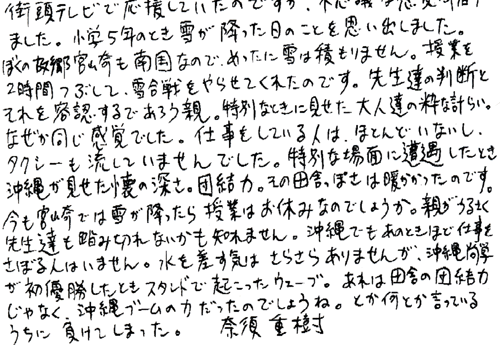 街頭テレビで応援していたのですが、
ました。小学5年のとき雪が降った日のことを思い出しました。
ぼくの故郷宮崎も南国なので、めったに雪は積もりません。授業を
2時間つぶして、雪合戦をやらせてくれたのです。先生達の判断と
それを容認するであろう親。特別なときに見せた大人達の粋な計らい。
なぜか同じ感覚でした。仕事をしている人は、ほとんどいないし、
タクシーも流していませんでした。特別な場面に遭遇したとき
沖縄が見せた懐の深さ。団結力。その田舎っぽさは暖かかったのです。
今も宮崎では雪が降ったら授業はお休みなのでしょうか。親がうるさく
先生達も踏み切れないかも知れません。沖縄でもあのときほど仕事を
さぼる人はいません。水を差す気はさらさらありませんが、沖縄尚学
が初優勝したときスタンドで起こったウェーブ。あれは田舎の団結力
じゃなく、沖縄ブームの力だったのでしょうね。とか何とか言っている
うちに負けてしまった。 奈須重樹